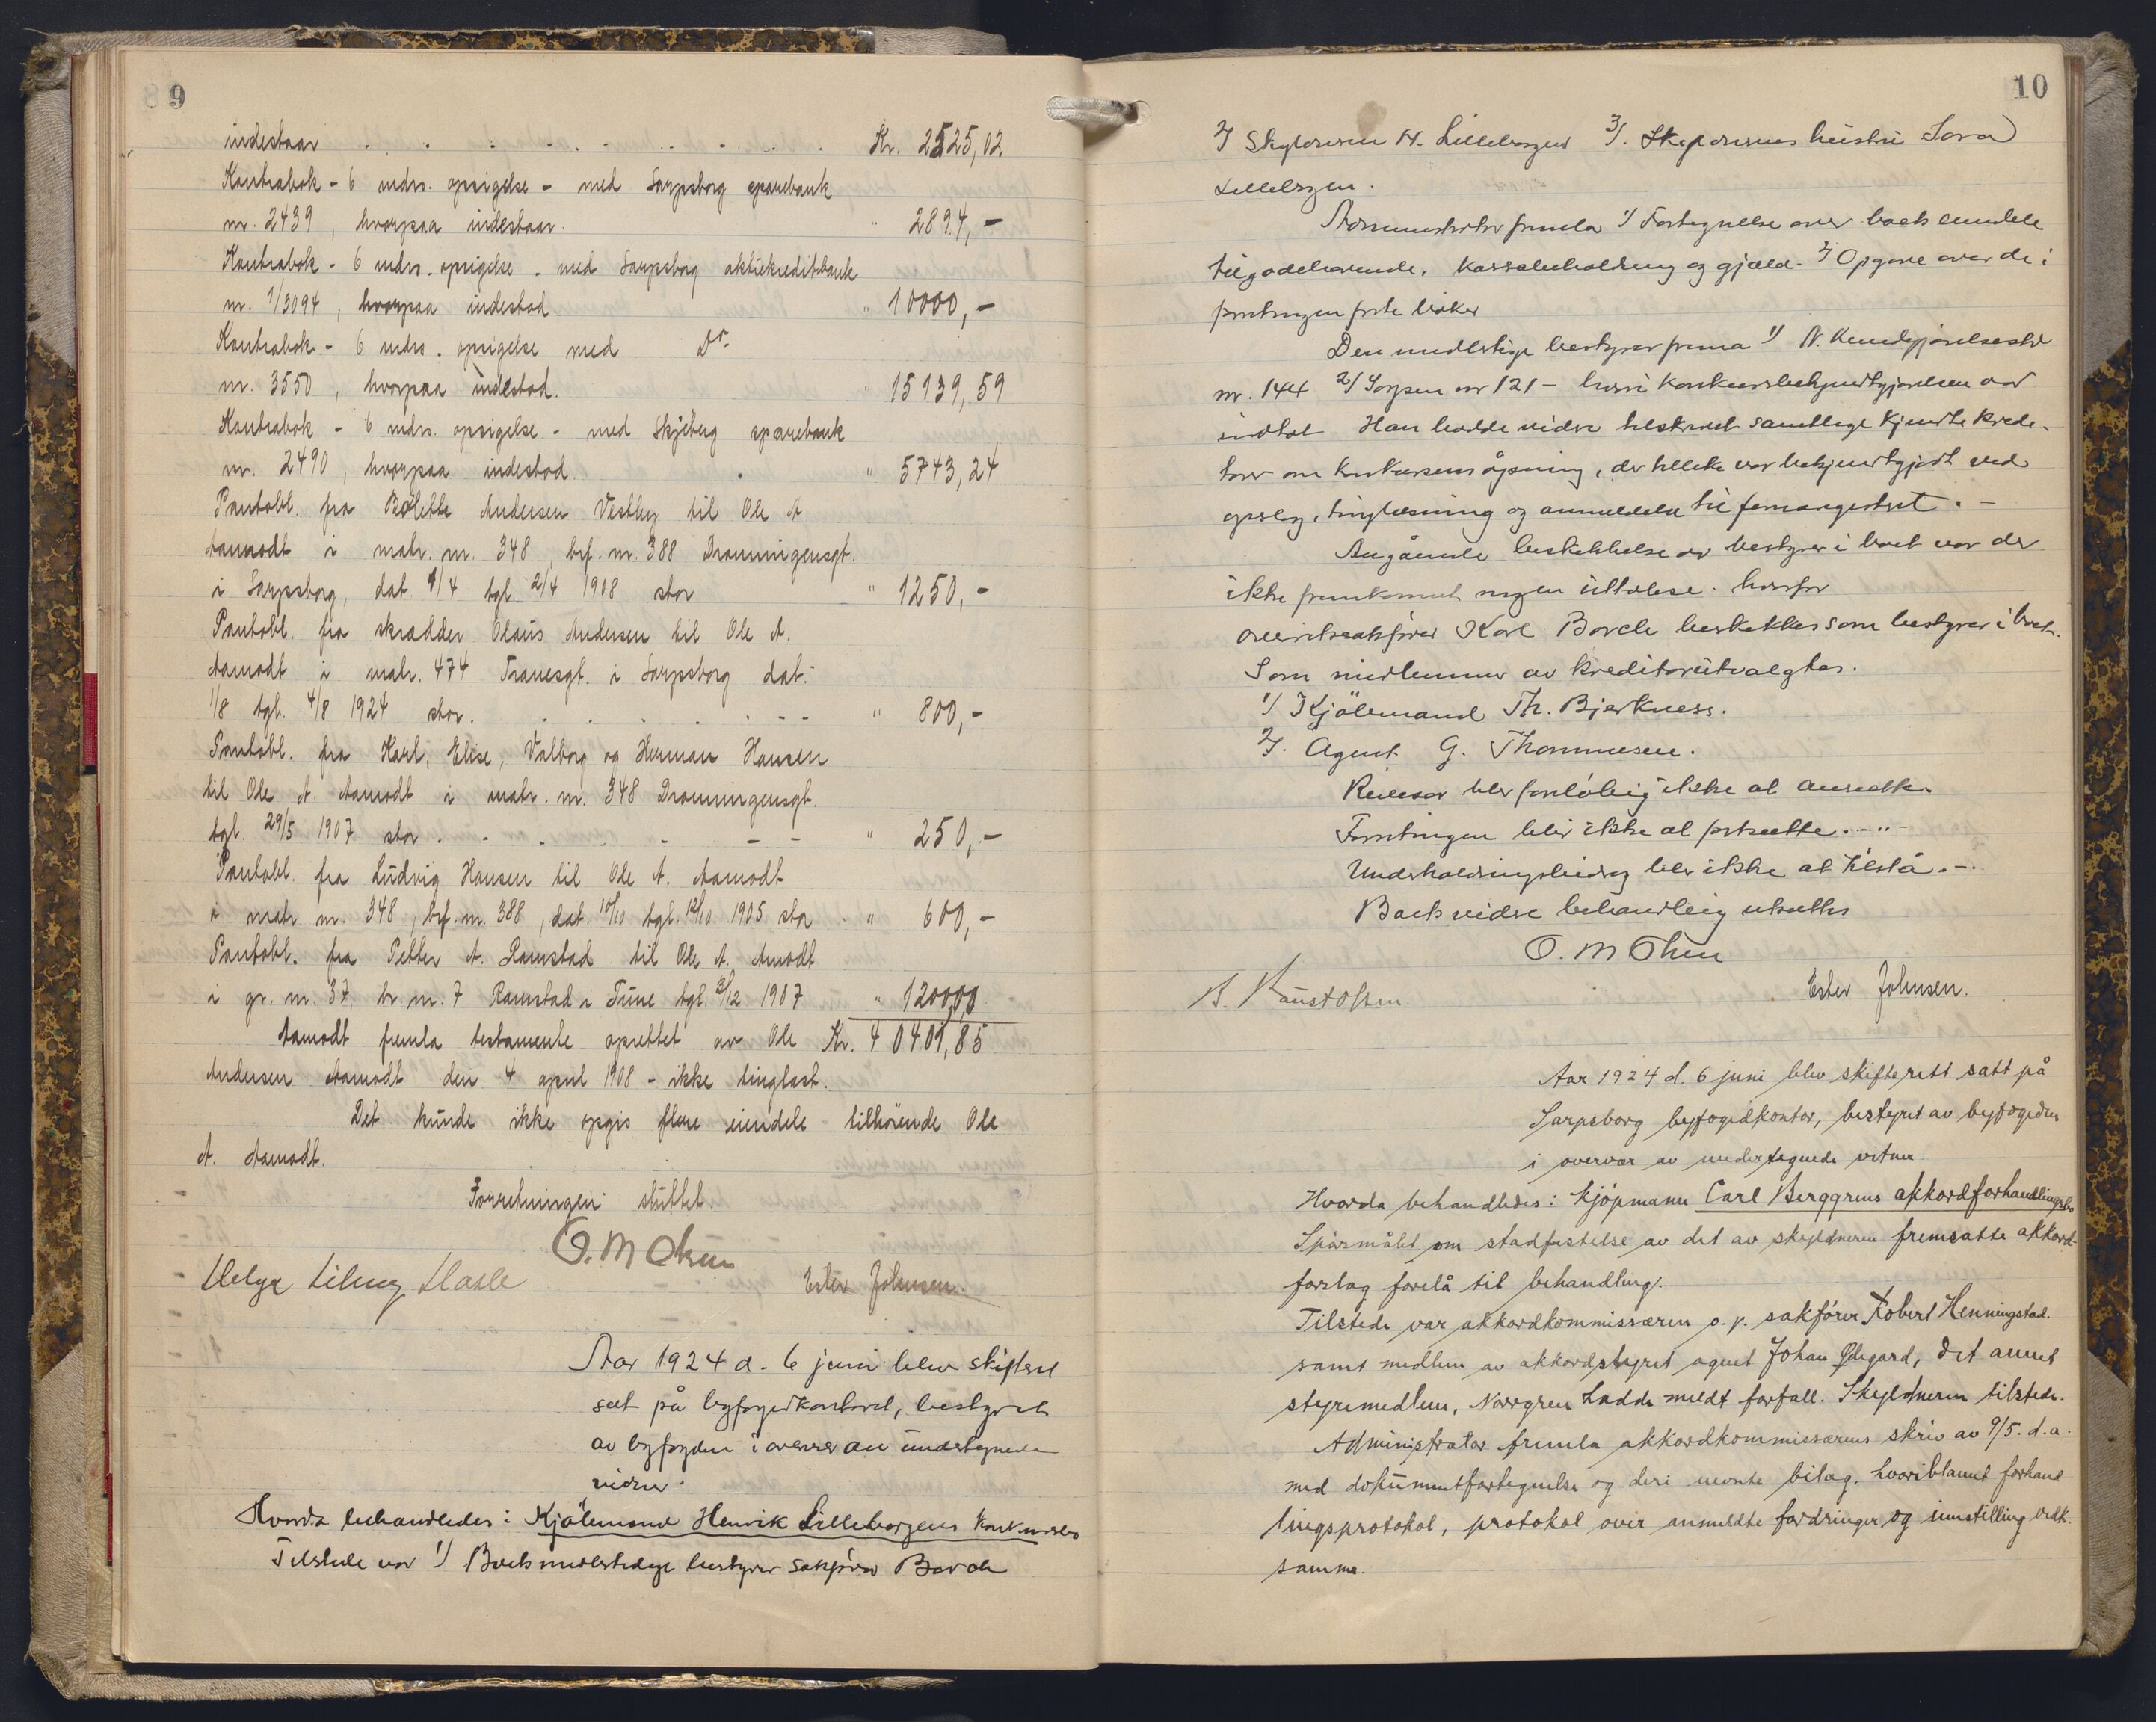 9
indestaar Kr. 2525,02
Kontrabok - 6 mdrs. opsigelse - med Sarpsborg sparebank
nr. 2439, hvorpaa indestaar. " 2894,-
Kontrabok - 6 mdrs. opsigelse - med Sarpsborg aktiekreditbank
nr. 1/3094, hvorpaa indestod. " 10000,-
Kontrabok - 6 mdrs. opsigelse med Do.
nr. 3550, hvorpaa indestod. " 15139,59
Kontrabok - 6 mdrs. opsigelse - med Skjeberg sparebank
nr. 2490, hvorpaa indestod. " 5743,24
Pantobl. fra Bolette Andersen Vestby til Ole A
Aamodt i matr. nr. 348, brf. nr. 388 Dronningensgt.
i Sarpsborg, dat. 1/4 tgl. 2/4 1908 stor " 1250,-
Pantobl. fra skrædder Olaus Andersen til Ole A.
Aamodt i matr. 474 Tranesgt. i Sarpsborg dat.
1/8 tgl. 4/8 1924 stor. " 800,-
Pantobl. fra Karl, Elise, Valborg og Herman Hansen
til Ole A. Aamodt i matr. nr. 348 Dronningensgt.
tgl. 29/5 1907 stor " 250,-
Pantobl. fra Ludvig Hansen til Ole A. Aamodt
i matr. nr. 348, brf. nr. 388, dat. 10/10 tgl. 12/10 1905 stor " 600,-
Pantobl. fra Petter A. Ramstad til Ole A. Amodt
i gr. nr. 37, br. nr. 7 Ramstad i Tune tgl. 3/12 1907 " 1200,00
Aamodt fremla testamente oprettet av Ole Kr. 40401,85
Andersen Aamodt den 4 april 1908 - ikke tinglæst.
Det kunde ikke opgis flere eiendele tilhörende Ole
A. Aamodt.
Forretningen sluttet.
O. M Olsen
Helga Hasle Ester Johnsen.
Aar 1924 d. 6 juni blev skifteret
sat på byfogedkontoret, bestyret
av byfogden i overvær av undertegnede
vidner.
Hvorda behandledes: Kjölemand Henrik Lilleborgens konkursbo
Tilstede var 1/ Boets midlertidige bestyrer sakfører Borch
10
2/ Skyldneren H. Lilleborgen 3/. Skyldnerens hustru Sara
Lilleborgen.
Administrator fremla 1/ Fortegnelse over boets eiendele
tilgodehavende, kassabeholdning og gjæld. 2/ Opgave over de i
forretningen førte bøker
Den midlertidige bestyrer fremla 1/ N. Kundgjørelsestid
nr. 144 2/ Sarpen nr 121 - hvori konkursbekjendtgjørelsen var
indtat Han hadde videre tilskrevet samtlige kjendte kredi-
torer om konkursens åpning, der tillike var bekjendtgjort ved
opslag, tinglæsning og anmeldelse til firmaregistret. -
Angående beskikkelse av bestyrer i boet var der
ikke fremkommet nogen uttalelse. hvorfor
overretssakfører Karl Borch beskikkes som bestyrer i boet.
Som medlemmer av kreditorutvalgtes.
1/ Kjölemand Th. Bjerkness.
2/. Agent G. Thommesen.
Revisor blev forlöbig ikke at ansætte.
Forretningen blev ikke at fortsætte. -"-
Underholdningsbidrag blev ikke at tilstå. -.
Boets videre behandling utsættes
O. M Olsen
A. Knustolsen Ester Johnsen.
Aar 1924 d. 6 juni blev skifterett satt på
Sarpsborg byfogedkontor, bestyret av byfogeden
i overvær av undertegnede vitner.
Hvorda behandledes: kjøpmann Carl Berggrens akkordforhandlingsbo
Spörmålet om stadfestelse av det av skyldneren fremsatte akkord-
forslag forelå til behandling.
Tilstede var akkordkommissæren o. r. sakförer Robert Henningstad.
samt medlem av akkordstyret agent Johan Ødegard, det annet
styremedlem, Norrgren hadde meldt forfall. Skyldneren tilstede.
Administrator fremla akkordkommissærens skriv av 9/5. d.a.
med dokumentfortegnelse og deri nevnte bilag, hvoriblandt forhand
lingsprotokol, protokol over anmeldte fordringer og innstilling vedk.
samme.